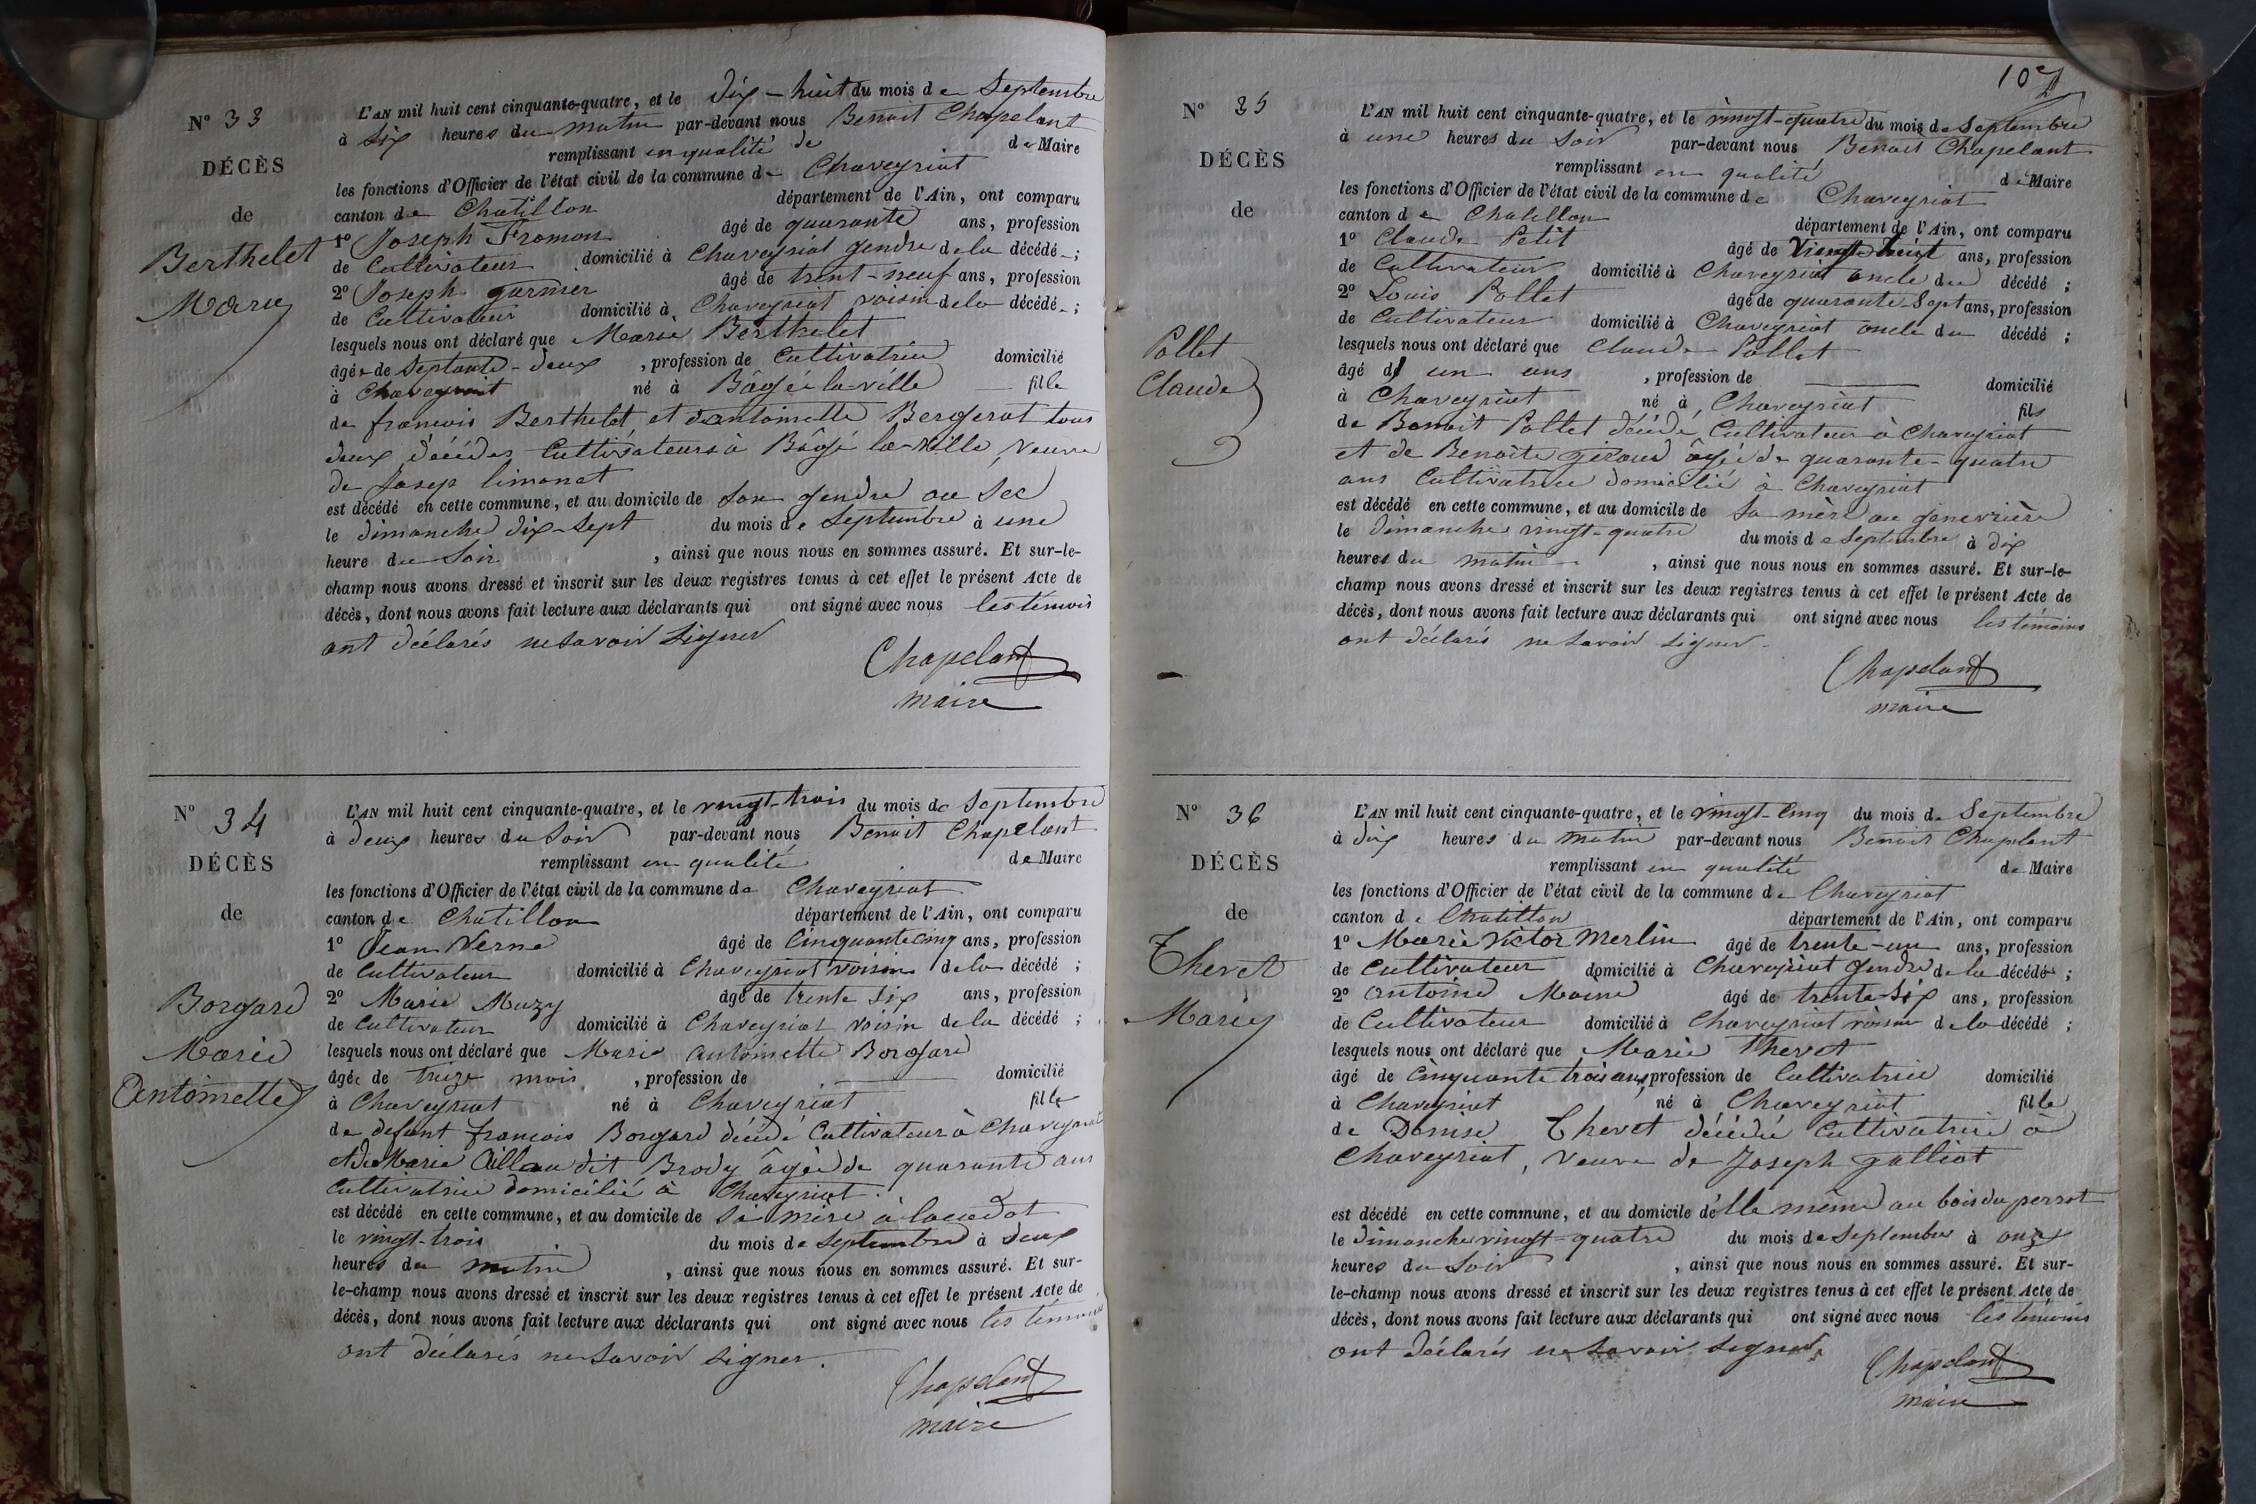 Nº 33
DÉCÈS
de
Berthelet
Marie
L'AN mil huit cent cinquante-quatre, et le dix-huit du mois de Septembre
à six heures du matin par-devant nous Benoit Chapelant
remplissant en qualité de de Maire
les fonctions d'Officier de l'état civil de la commune de Chaveyriat
canton de Chatillon département de l'Ain, ont comparu
1º Joseph Fromon âgé de quarante ans, profession
de Cultivateur domicilié à Chaveyriat gendre de la décédé ;
2º Joseph garnier âgé de trent-neuf ans, profession
de Cultivateur domicilié à Chaveyriat voisin de la décédé ;
lesquels nous ont déclaré que Marie Berthelet
âgée de Septante-deux , profession de Cultivatrice domicilié
à Chaveyriat né à Bâgé la ville fille
de françois Berthelet et dantoinette Bergerat tous
deux décédés Cultivateurs à Bâgé la ville, veuve
de Josep limonet
est décédé en cette commune, et au domicile de son gendre au Sec
le dimanche dix-sept du mois de Septembre à une
heure du Soir , ainsi que nous nous en sommes assuré. Et sur-le-
champ nous avons dressé et inscrit sur les deux registres tenus à cet effet le présent Acte de
décès, dont nous avons fait lecture aux déclarants qui ont signé avec nous les témoins
ont déclarés ne savoir signer
Chapelant
maire
Nº 34
DÉCÈS
de
Borgard
Marie
Antoinette
L'AN mil huit cent cinquante-quatre, et le vingt-trois du mois de Septembre
à deux heures du Soir par-devant nous Benoit Chapelant
remplissant en qualité de Maire
les fonctions d'Officier de l'état civil de la commune de Chaveyriat
canton de Chatillon département de l'Ain, ont comparu
1º Jean Verne âgé de Cinquante cinq ans, profession
de Cultivateur domicilié à Chaveyriat voisin de la décédé ;
2º Marie Muzy âgé de trente six ans, profession
de Cultivateur domicilié à Chaveyriat voisin de la décédé ;
lesquels nous ont déclaré que Marie antoinette Borgard
âgée de treize mois , profession de domicilié
à Chaveyriat né à Chaveyriat fille
de defunt françois Borgard décédé Cultivateur à Chaveyriat
et de Marie Aillau dit Brody âgée de quarante ans
Cultivatrice domicilié à Chaveyriat.
est décédé en cette commune, et au domicile de sa mère à
le vingt-trois du mois de Septembre à deux
heures du matin , ainsi que nous nous en sommes assuré. Et sur-
le-champ nous avons dressé et inscrit sur les deux registres tenus à cet effet le présent Acte de
décès, dont nous avons fait lecture aux déclarants qui ont signé avec nous les témoins
ont déclarés ne savoir signer.
Chapelant
maire
107
Nº 35
DÉCÈS
de
Pollet
Claude
L'AN mil huit cent cinquante-quatre, et le vingt-quatre du mois de Septembre
à une heures du Soir par-devant nous Benoit Chapelant
remplissant en qualité de Maire
les fonctions d'Officier de l'état civil de la commune de Chaveyriat
canton de Chatillon département de l'Ain, ont comparu
1º Claude Petit âgé de Vingt huit ans, profession
de Cultivateur domicilié à Chaveyriat oncle du décédé ;
2º Louis Pollet âgé de quarante Sept ans, profession
de Cultivateur domicilié à Chaveyriat oncle du décédé ;
lesquels nous ont déclaré que Claude Pollet
âgé d' un ans , profession de domicilié
à Chaveyriat né à Chaveyriat fils
de Benoit Pollet décédé Cultivateur à Chaveyriat
et de Benoîte géraud âgée de quarante-quatre
ans Cultivatrice domicilié à Chaveyriat
est décédé en cette commune, et au domicile de sa mère au genevrière
le dimanche vingt-quatre du mois de Septembre à dix
heures du matin , ainsi que nous nous en sommes assuré. Et sur-le-
champ nous avons dressé et inscrit sur les deux registres tenus à cet effet le présent Acte de
décès, dont nous avons fait lecture aux déclarants qui ont signé avec nous les témoins
ont déclarés ne savoir signer
Chapelant
maire
Nº 36
DÉCÈS
de
Thevet
Marie
L'AN mil huit cent cinquante-quatre, et le vingt-cinq du mois de Septembre
à dix heures du matin par-devant nous Benoit Chapelant
remplissant en qualité de Maire
les fonctions d'Officier de l'état civil de la commune de Chaveyriat
canton de Chatillon département de l'Ain, ont comparu
1º Marie Victor Merlin âgé de trente-un ans, profession
de Cultivateur domicilié à Chaveyriat gendre de la décédé ;
2º antoine Moine âgé de trente-six ans, profession
de Cultivateur domicilié à Chaveyriat voisin de la décédé ;
lesquels nous ont déclaré que Marie Thevet
âgé de Cinquante trois ans, profession de Cultivatrice domicilié
à Chaveyriat né à Chaveyriat fille
de Denise Thevet décédée Cultivatrice à
Chaveyriat, veuve de Joseph galliot
est décédé en cette commune, et au domicile d'elle même au bois du perrot
le dimanche vingt-quatre du mois de Septembre à onze
heures du Soir , ainsi que nous nous en sommes assuré. Et sur-
le-champ nous avons dressé et inscrit sur les deux registres tenus à cet effet le présent Acte de
décès, dont nous avons fait lecture aux déclarants qui ont signé avec nous les témoins
ont déclarés ne savoir signer
Chapelant
maire